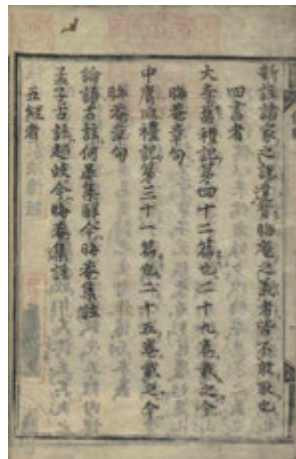 新註諸家之説違晦庵之義者皆不敢取也
四書者
大学舊禮記第四十二篇也二十九卷載之今
晦菴章句
中庸血禮記第三十一篇也二十五卷載之今
晦菴章句
論語古註何晏集解今晦菴集註
孟子古註趙岐今晦菴集註
五經者